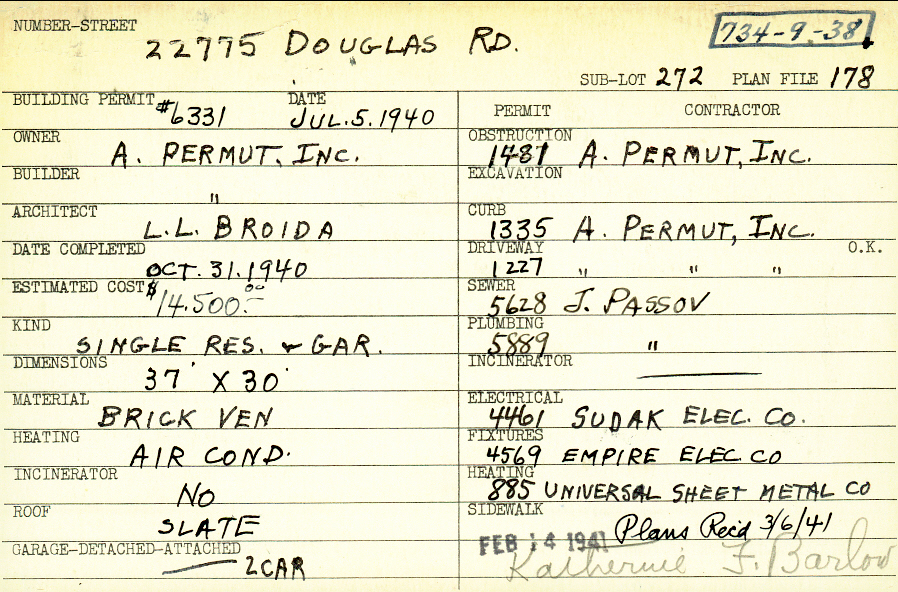 NUMBER-STREET
22775 DOUGLAS RD.
734-9-38
SUB-LOT 272 PLAN FILE 178
BUILDING PERMIT #6331 DATE JUL. 5. 1940
OWNER
A. PERMUT, INC.
BUILDER
"
ARCHITECT
L.L. BROIDA
DATE COMPLETED
OCT. 31. 1940
ESTIMATED COST $14.500.00
KIND
SINGLE RES. & GAR.
DIMENSIONS
37' X 30'
MATERIAL
BRICK VEN
HEATING
AIR COND.
INCINERATOR
NO
ROOF
SLATE
GARAGE-DETACHED-ATTACHED
2 CAR
PERMIT CONTRACTOR
OBSTRUCTION
1481 A. PERMUT, INC.
EXCAVATION
CURB
1335 A. PERMUT, INC.
DRIVEWAY O.K.
1227 " " "
SEWER
5628 J. PASSOV
PLUMBING
5889 "
INCINERATOR
ELECTRICAL
4461 SUDAK ELEC. CO.
FIXTURES
4569 EMPIRE ELEC. CO
HEATING
885 UNIVERSAL SHEET METAL CO
SIDEWALK
Plans Rec'd 3/6/41
FEB 14 1941
Katherine F. Barlow